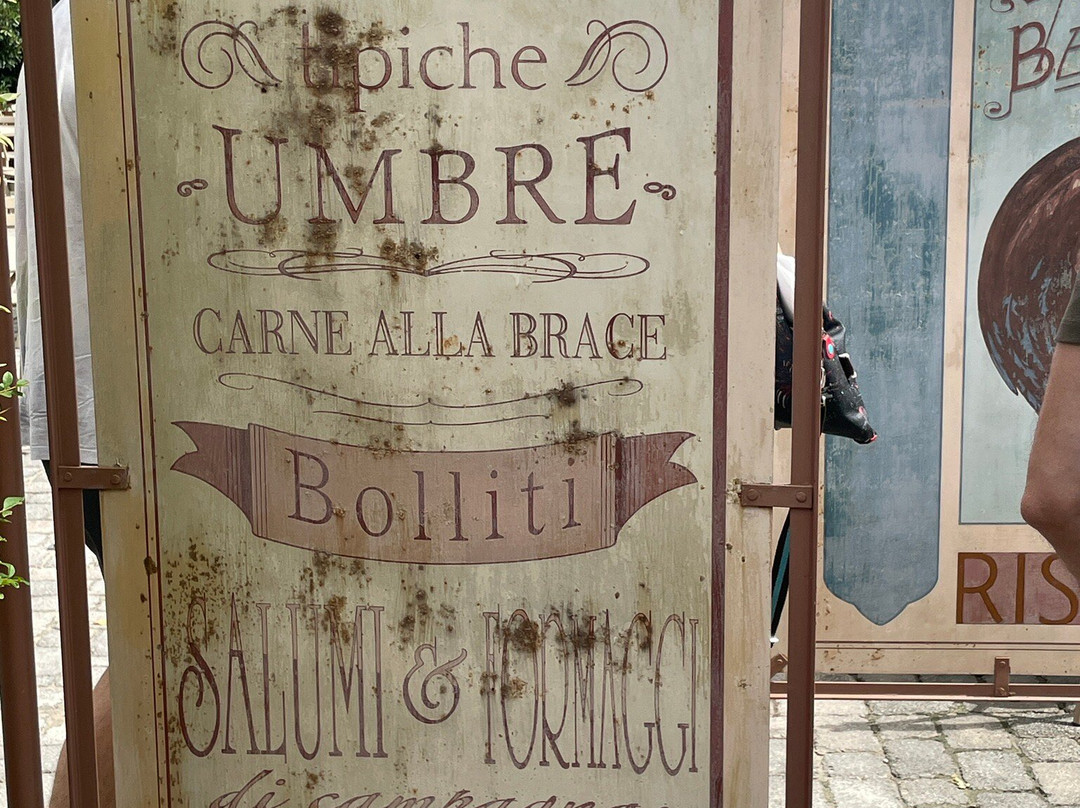 tipiche
UMBRE
CARNE ALLA BRACE
Bolliti
SALUMI & FORMAGGI
di campagna
BE
RIS